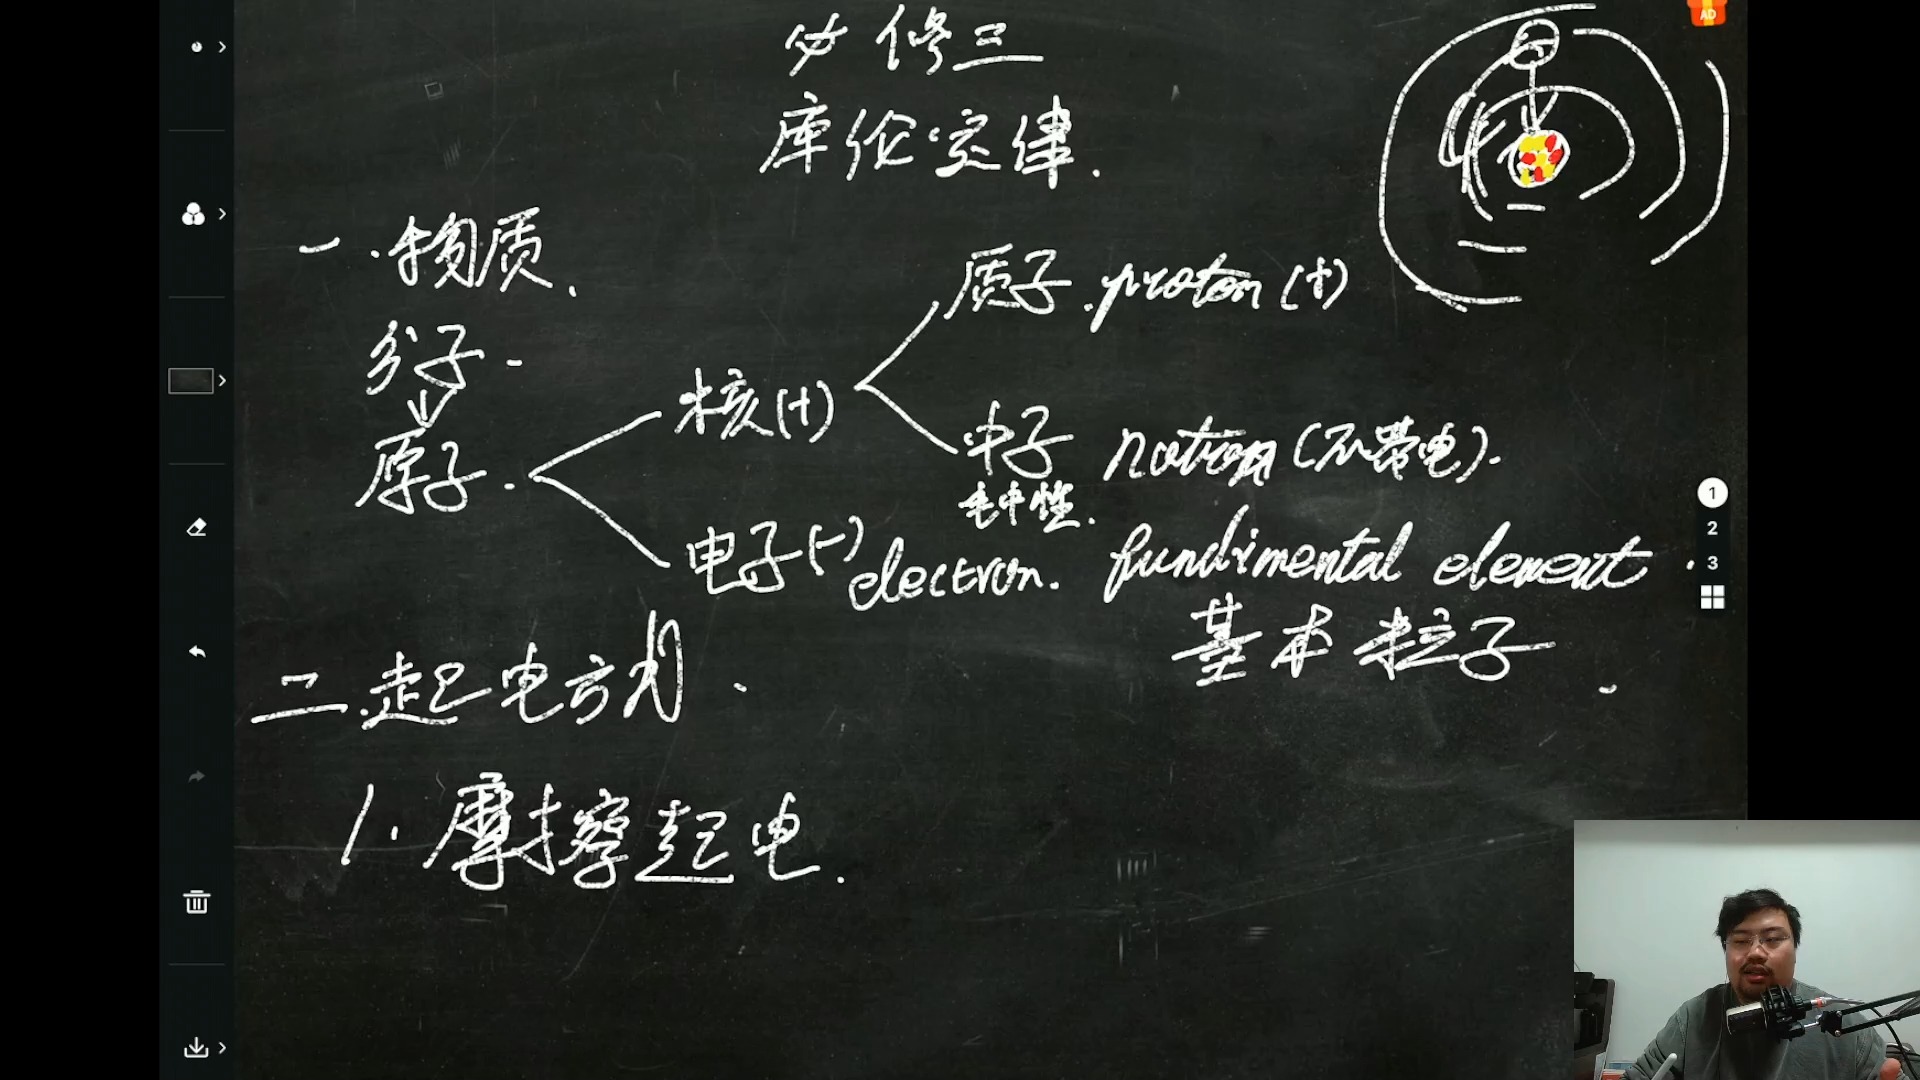 必修三
库伦定律.
一.物质.
分子.
原子.
核(+)
质子.proton(+)
中子 notron(不带电).
电中性.
电子(-)electron. fundimental element.
基本粒子
二.起电方式.
1.摩擦起电.
AD
1
2
3